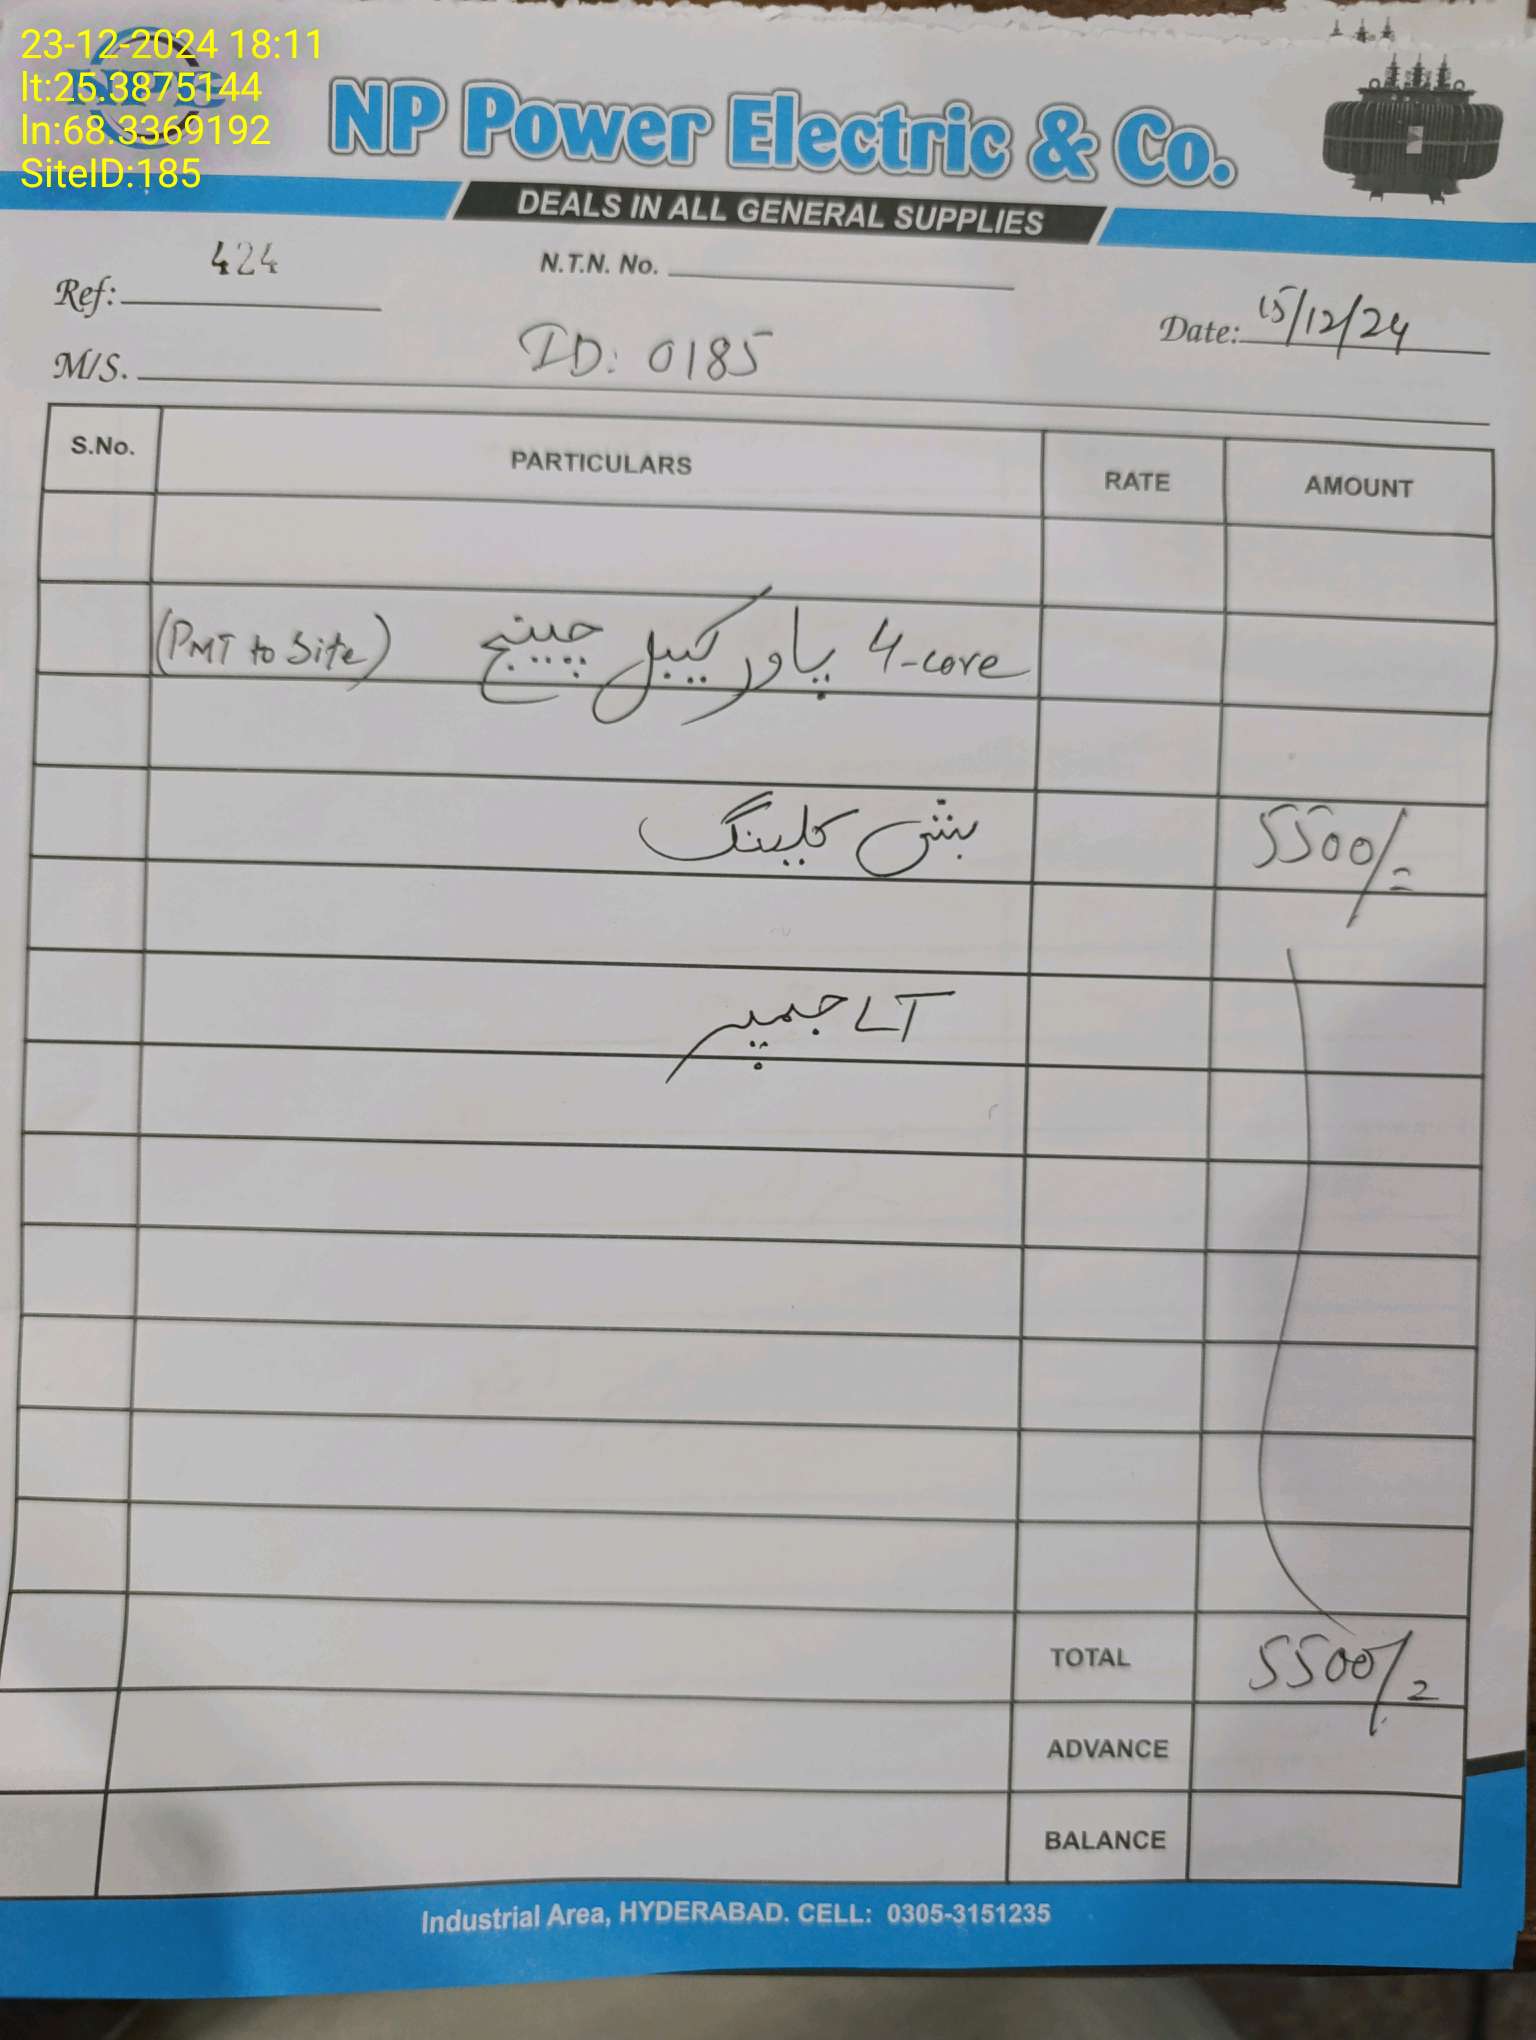 23-12-2024 18:11
lt:25.3875144
ln:68.3369192
SiteID:185
NP Power Electric & Co.
DEALS IN ALL GENERAL SUPPLIES
Ref: 424
N.T.N. No.
Date: 15/12/24
M/S. ID: 0185
S.No. PARTICULARS RATE AMOUNT
4-core پاور کیبل چینج (PMT to Site)
بش کلینگ 5500/=
LT جمپر
TOTAL 5500/=
ADVANCE
BALANCE
Industrial Area, HYDERABAD. CELL: 0305-3151235